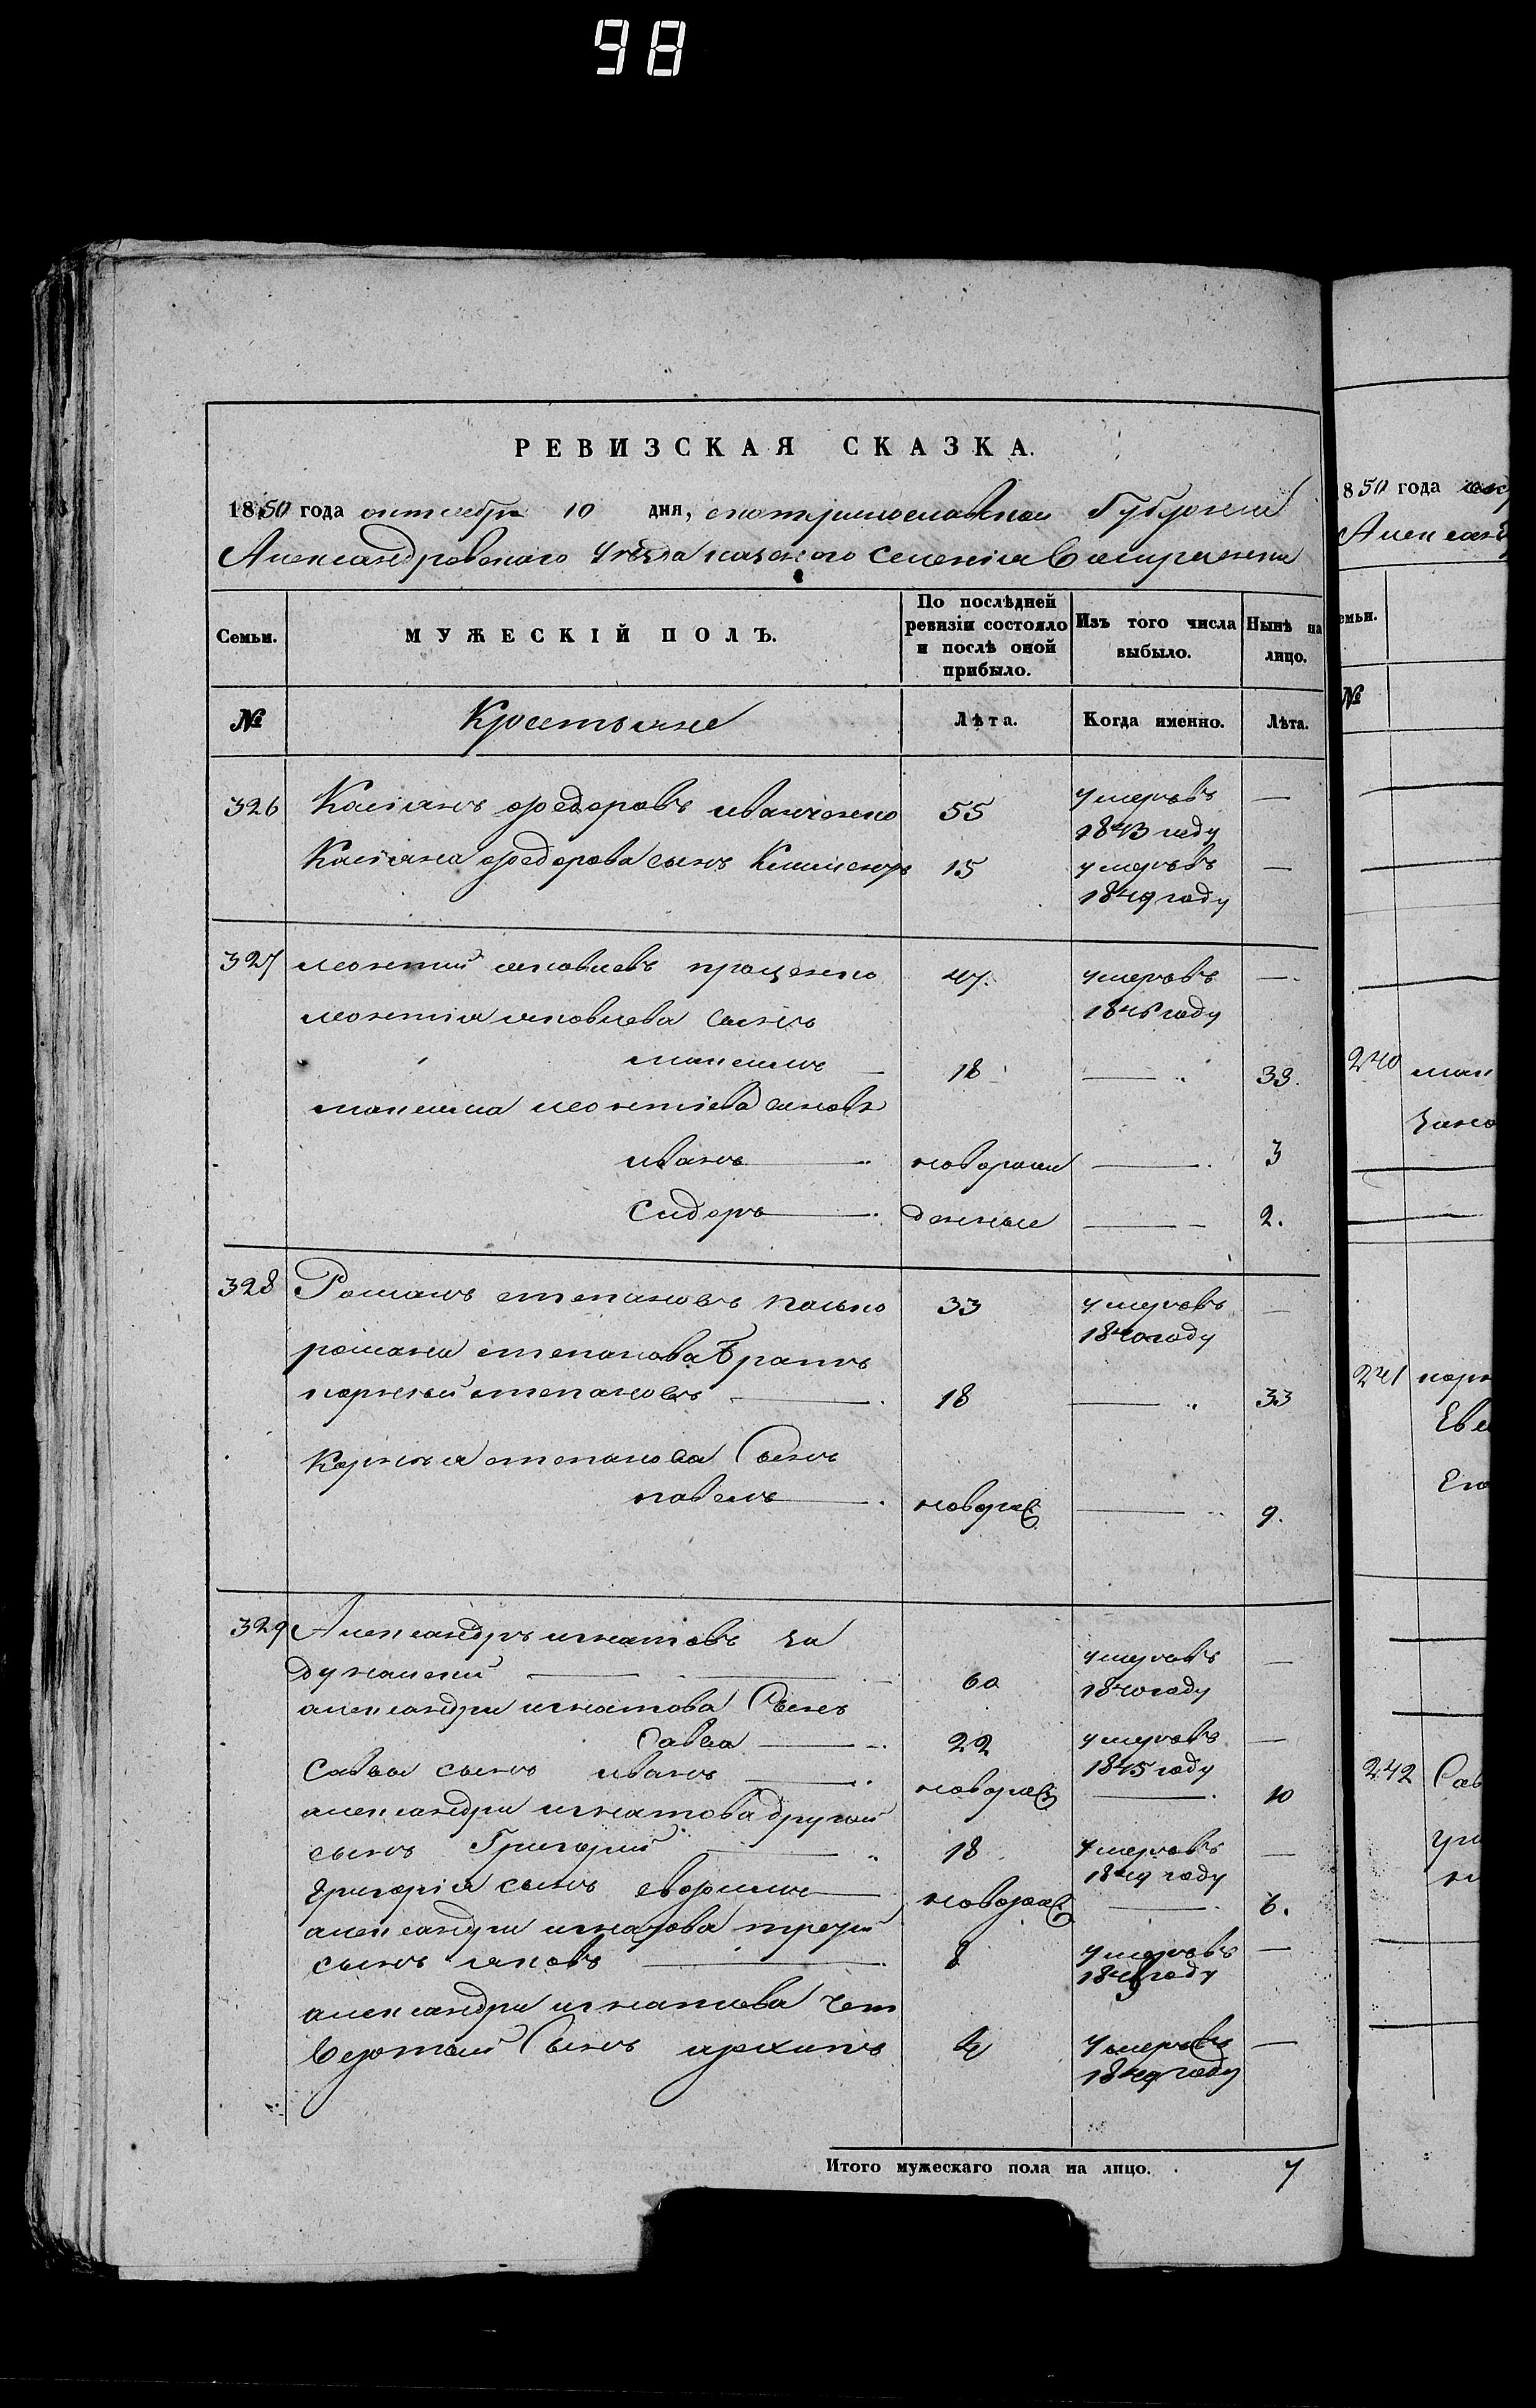 98
РЕВИЗСКАЯ СКАЗКА.
1850 года октебря 10 дня, екатеринославской Губернеи
Александровскаго Уезда казеного селенія
Семьи. МУЖЕСКІЙ ПОЛЪ. По послѣдней ревизіи состояло и послѣ оной прибыло. Изъ того числа выбыло. Нынѣ на лицо.
№ Крестьяне Лѣта. Когда именно. Лѣта.
326 Касіянъ федоровъ иванченко 55 умеръвъ —
1843 году
Касіяна федорова сынъ 15 умеръвъ —
1849 году
327 леонтий яковлевъ проценко 47. умеръвъ —
леонтія яковлева сынъ 1846 году
максимъ 18 — 33.
максима леонтіева синовъ
иванъ — новорож — 3
Сидоръ — денные — 2.
328 Романъ степановъ палько 33 умеръвъ —
1840 году
романа степанова Братъ
корней степановъ — 18 — 33
Корнея степанова Сынъ
павелъ — новорож — 9.
329 Александръ игнатовъ за
дунаский — 60 умеръвъ —
1840 году
александра игнатова Сынъ
Савва — 22 умеръвъ —
1845 году
Саввы сынъ иванъ — новорож — 10
александра игнатова другой
сынъ Григорий — 18 умеръвъ —
1849 году
Григорія сынъ ефримъ — новорож — 6.
александра игнатова третий
сынъ яковъ — 8 умеръвъ —
году
александра игнатова чет
вертый Сынъ архипъ 4 умеръвъ —
1849 году
Итого мужескаго пола на лицо. 7
1850 года
Александ
емьи.
№
240 мак
241 корн
242 Сав